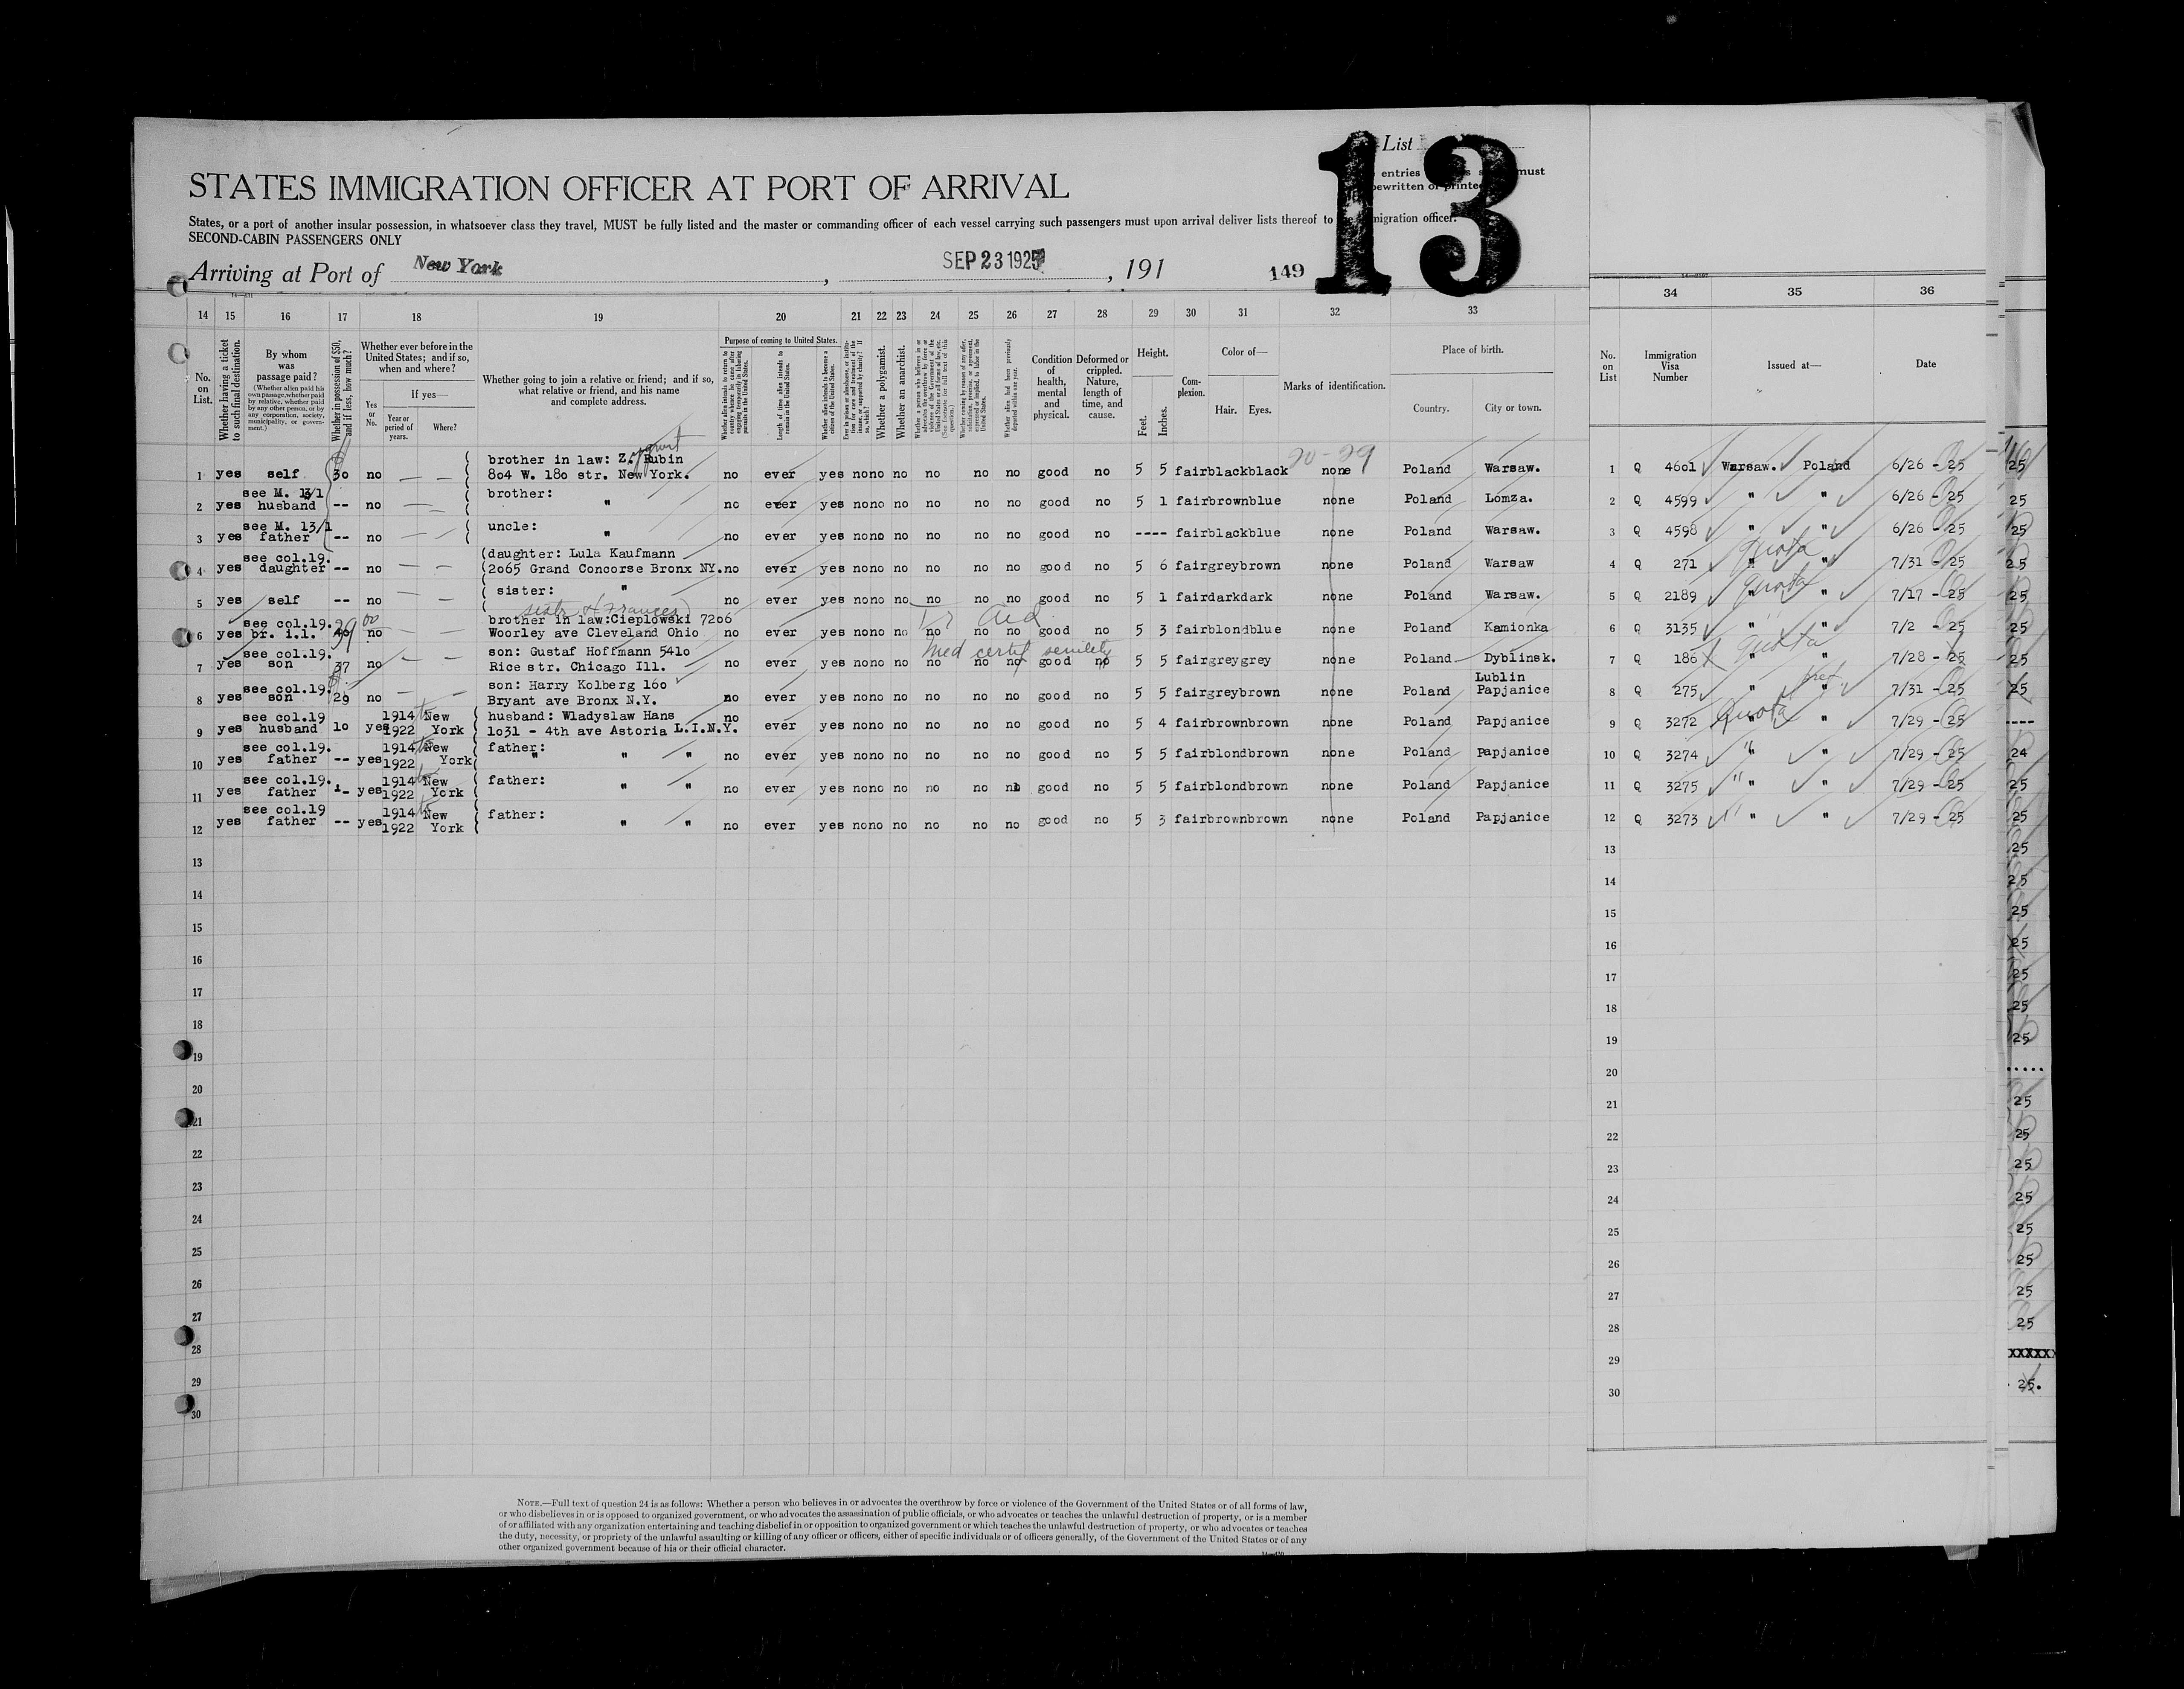 List
13
entries must
STATES IMMIGRATION OFFICER AT PORT OF ARRIVAL
States, or a port of another insular possession, in whatsoever class they travel, MUST be fully listed and the master or commanding officer of each vessel carrying such passengers must upon arrival deliver lists thereof to migration officer.
SECOND-CABIN PASSENGERS ONLY
Arriving at Port of New York, SEP 23 1925, 191
149
14 15 16 17 18 19 20 21 22 23 24 25 26 27 28 29 30 31 32 33 34 35 36
No. on List.
Whether having a ticket to such final destination.
By whom was passage paid?
(Whether alien paid his own passage, whether paid by relative, whether paid by any other person, or by any corporation, society, municipality, or government.)
Whether in possession of $50, and if less, how much?
Whether ever before in the United States; and if so, when and where?
If yes—
Yes or No.
Year or period of years.
Where?
Whether going to join a relative or friend; and if so, what relative or friend, and his name and complete address.
Purpose of coming to United States.
Whether alien intends to return to country whence he came after engaging temporarily in laboring pursuits in the United States.
Length of time alien intends to remain in the United States.
Whether alien intends to become a citizen of the United States.
Whether a polygamist.
Whether an anarchist.
Condition of health, mental and physical.
Deformed or crippled. Nature, length of time, and cause.
Height.
Feet.
Inches.
Complexion.
Color of—
Hair. Eyes.
Marks of identification.
Place of birth.
Country.
City or town.
No. on List
Immigration Visa Number
Issued at—
Date
20-29
1 yes self 30 no — — brother in law: Z. Rubin 804 W. 180 str. New York. no ever yes no no no no no no good no 5 5 fair black black none Poland Warsaw. 1 Q 4601 Warsaw. Poland 6/26 - 25
2 yes see M. 13/1 husband -- no — — brother: " no ever yes no no no no no no good no 5 1 fair brown blue none Poland Lomza. 2 Q 4599 " " 6/26 - 25
3 yes see M. 13/1 father -- no — — uncle: " no ever yes no no no no no no good no ---- fair black blue none Poland Warsaw. 3 Q 4598 " " 6/26 - 25
4 yes see col.19. daughter -- no — — (daughter: Lula Kaufmann (2065 Grand Concorse Bronx NY. no ever yes no no no no no no good no 5 6 fair grey brown none Poland Warsaw 4 Q 271 quota " " 7/31 - 25
5 yes self -- no — — ( sister: " no ever yes no no no no no no good no 5 1 fair dark dark none Poland Warsaw. 5 Q 2189 quota " 7/17 - 25
sister (Frances)
6 yes see col.19. br. i.l. 39 no — — brother in law:Cieplowski 7206 Woorley ave Cleveland Ohio no ever yes no no no no no no good no 5 3 fair blond blue none Poland Kamionka 6 Q 3135 " " 7/2 - 25
Med certif senility
7 yes see col.19. son 37 no — — son: Gustaf Hoffmann 5410 Rice str. Chicago Ill. no ever yes no no no no no no good no 5 5 fair grey grey none Poland Dyblinsk. 7 Q 186 quota " " 7/28 - 25
8 yes see col.19. son 29 no — — son: Harry Kolberg 160 Bryant ave Bronx N.Y. no ever yes no no no no no no good no 5 5 fair grey brown none Poland Lublin Papjanice 8 Q 275 " pref " 7/31 - 25
9 yes see col.19 husband 10 yes 1914 to 1922 New York husband: Wladyslaw Hans 1031 - 4th ave Astoria L.I.N.Y. no ever yes no no no no no no good no 5 4 fair brown brown none Poland Papjanice 9 Q 3272 Quota " " 7/29 - 25
10 yes see col.19. father -- yes 1914 to 1922 New York father: " " " no ever yes no no no no no no good no 5 5 fair blond brown none Poland Papjanice 10 Q 3274 " " 7/29 - 25
11 yes see col.19. father -- yes 1914 to 1922 New York father: " " no ever yes no no no no no no good no 5 5 fair blond brown none Poland Papjanice 11 Q 3275 " " " 7/29 - 25
12 yes see col.19 father -- yes 1914 to 1922 New York father: " " no ever yes no no no no no no good no 5 3 fair brown brown none Poland Papjanice 12 Q 3273 " " " 7/29 - 25
13 13
14 14
15 15
16 16
17 17
18 18
19 19
20 20
21 21
22 22
23 23
24 24
25 25
26 26
27 27
28 28
29 29
30 30
NOTE.—Full text of question 24 is as follows: Whether a person who believes in or advocates the overthrow by force or violence of the Government of the United States or of all forms of law,
or who disbelieves in or is opposed to organized government, or who advocates the assassination of public officials, or who advocates or teaches the unlawful destruction of property, or is a member
of or affiliated with any organization entertaining and teaching disbelief in or opposition to organized government or which teaches the unlawful destruction of property, or who advocates or teaches
the duty, necessity, or propriety of the unlawful assaulting or killing of any officer or officers, either of specific individuals or of officers generally, of the Government of the United States or of any
other organized government because of his or their official character.